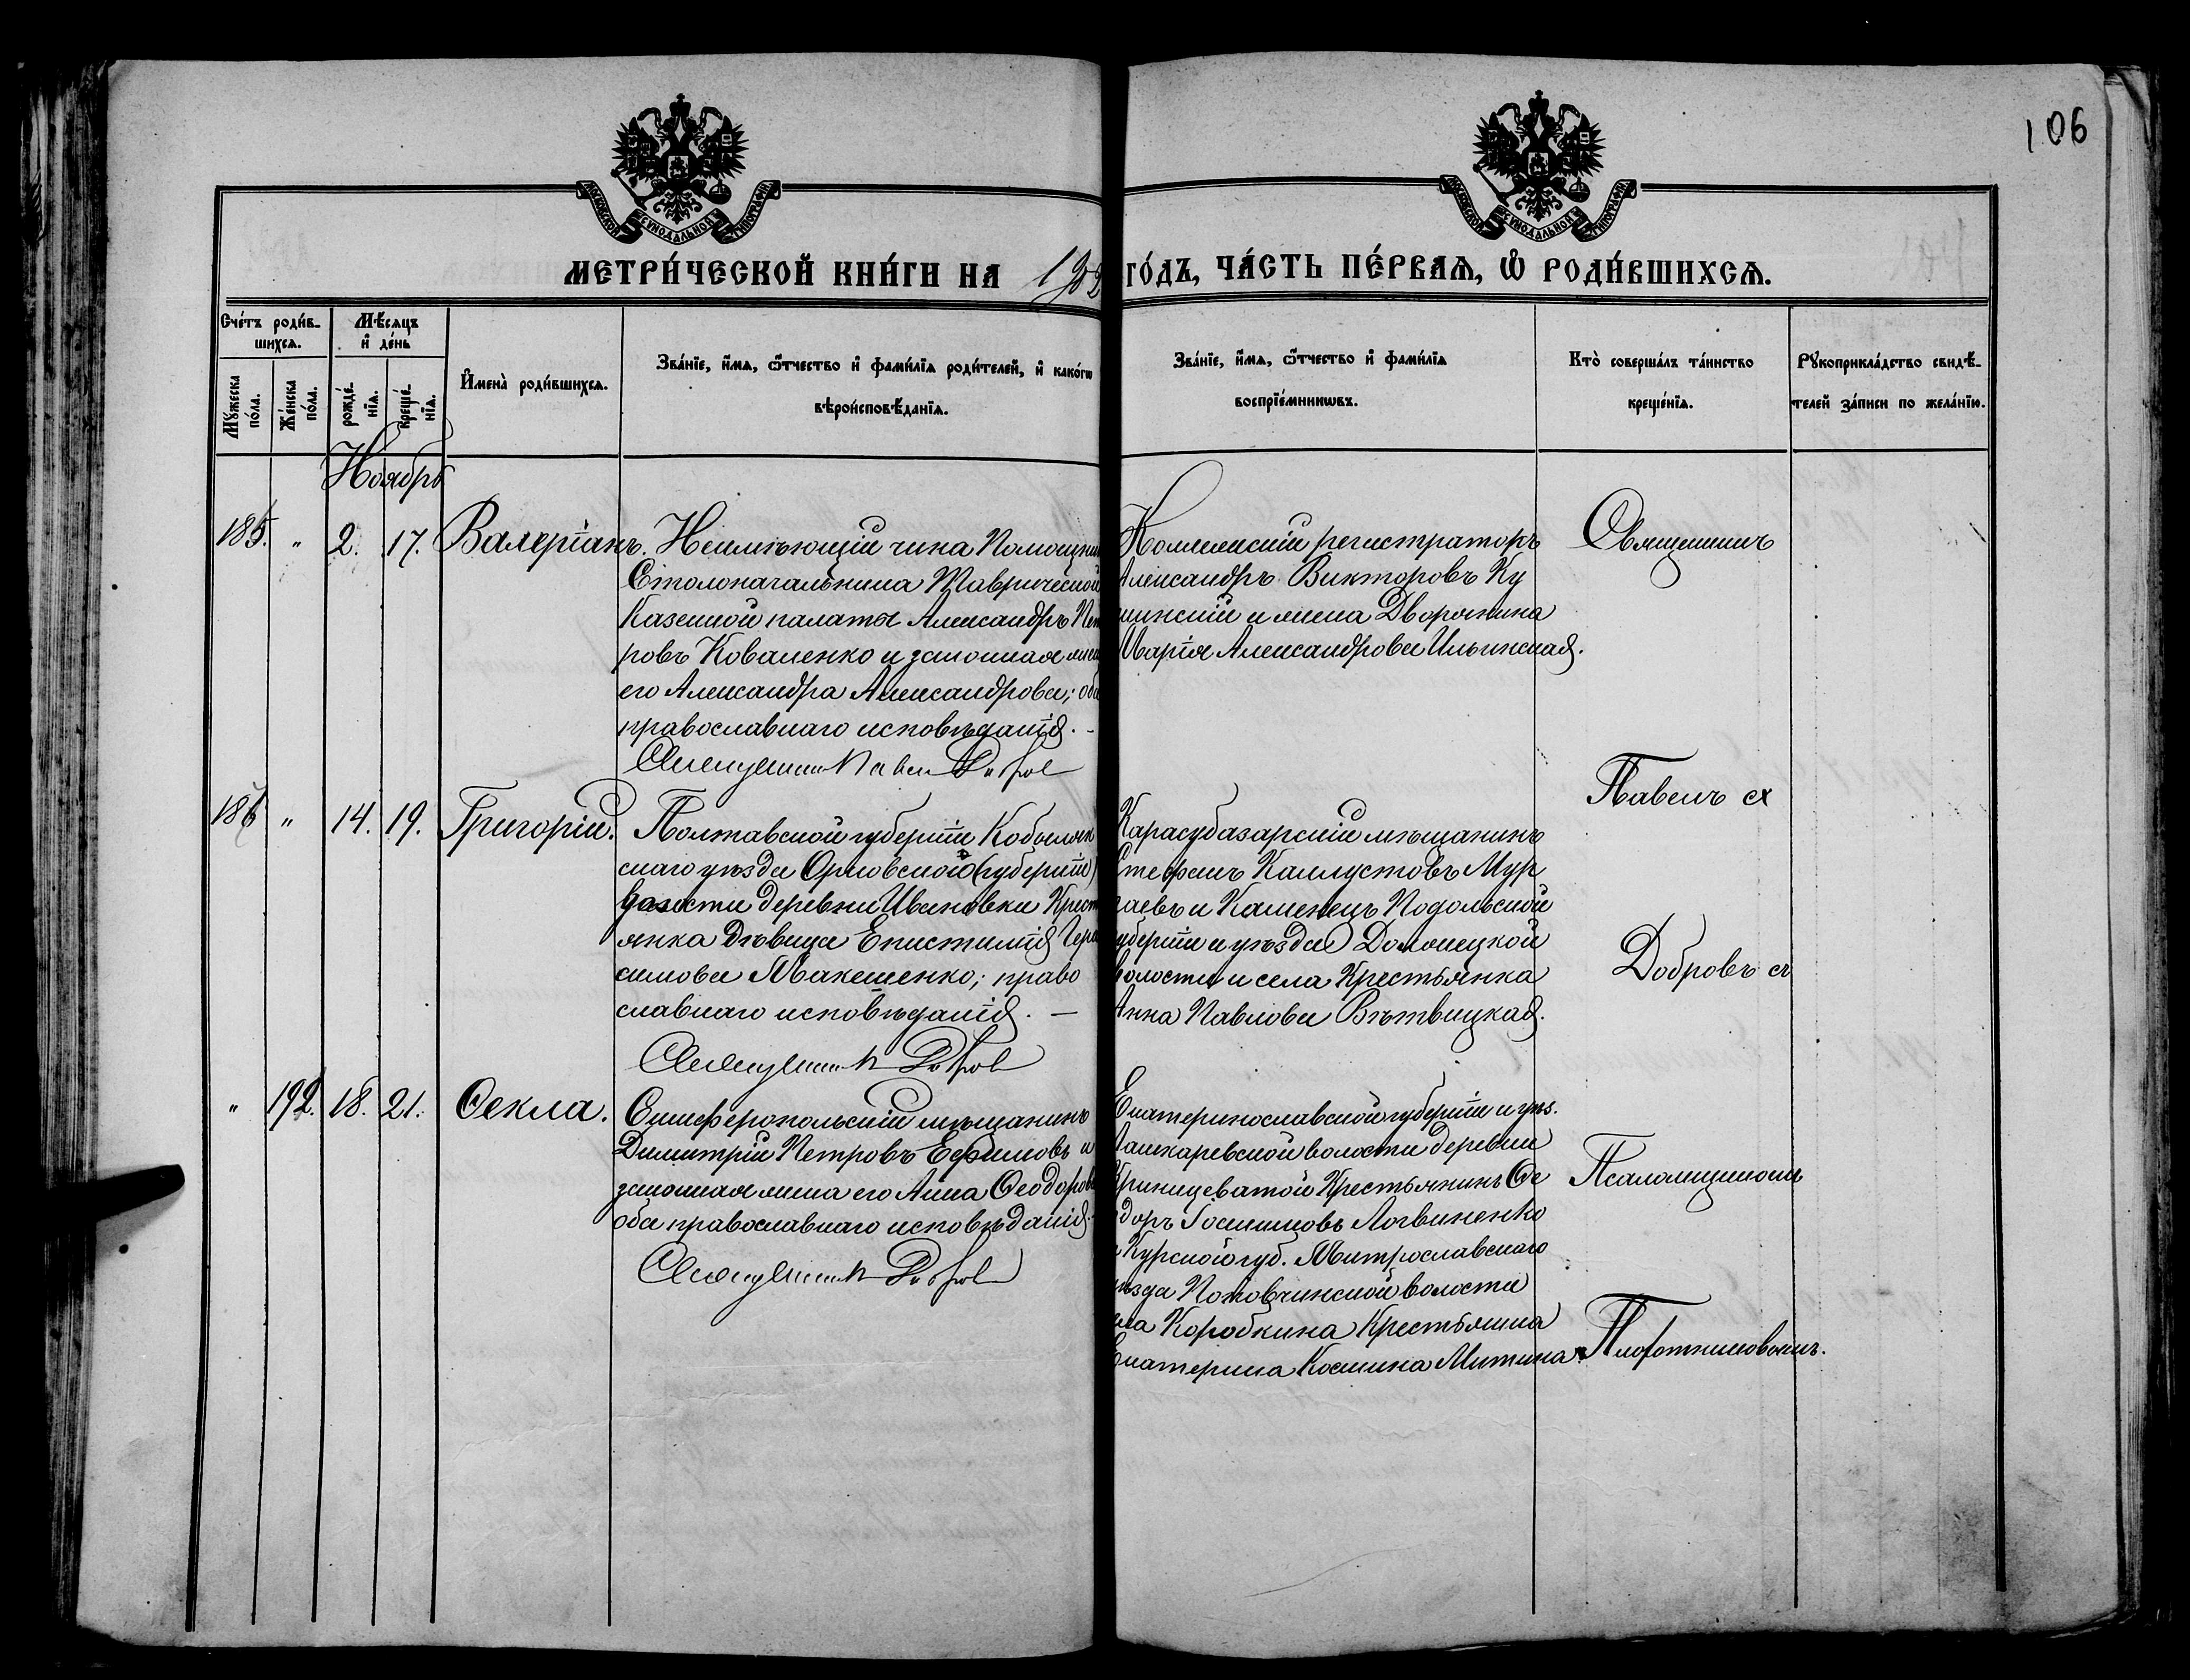 106
МОСКОВСКОЙ СѴНОДАЛЬНОЙ ТИПОГРАФІИ
МОСКОВСКОЙ СѴНОДАЛЬНОЙ ТИПОГРАФІИ
МЕТРИ́ЧЕСКОЙ КНИ́ГИ НА 1902 ГО́ДЪ, ЧА́СТЬ ПЕ́РВАѦ, Ѿ РОДИ́ВШИХСѦ.
Сче́тъ роди́в-
шихсѧ.
Мꙋжеска по́ла.
Же́нска по́ла.
Мѣ́сѧцъ и де́нь
рожде́-
нїѧ.
креще́-
нїѧ.
Имена̀ роди́вшихсѧ.
Зва́нїе, и́мѧ, ѻ́тчество и фами́лїѧ роди́телей, и како́гѡ
вѣроисповѣ́данїѧ.
Зва́нїе, и́мѧ, ѻ́тчество и фами́лїѧ
воспрїе́мникѡвъ.
Кто̀ соверша́лъ та́инство
креще́нїѧ.
Рꙋкоприкла́дство свидѣ́-
телей за́писи по жела́нїю.
Ноябрь
185. „ 2. 17. Валеріанъ.
Неимѣющій чина Помощни
Столоначальника Таврической
Казенной палаты Александръ Пет
ровъ Коваленко и законная жен
его Александра Александрова; оба
православнаго исповѣданія. -
Священникъ Павелъ Добров
Коллежскій регистраторъ
Александръ Викторовъ Ку
шинскій и жена Дворянина
Марія Александрова Ильинская.
Священникъ
186 „ 14. 19. Григорій.
Полтавской губерніи Кобыляк
скаго уѣзда Орловской (губерніи)
волости деревни Ивановки Крест
янка дѣвица Епистимія Гера
симова Макешенко; право
славнаго исповѣданія. —
Священник П Добров
Карасубазарскій мѣщанинъ
Стефанъ Каллустовъ Мур
заевъ и Каменецъ Подольской
губерніи и уѣзда Должецкой
волости и села Крестьянка
Анна Павлова Вѣтвицкая.
Павелъ
Добровъ съ
„ 192. 18. 21. Ѳекла.
Симферопольскій мѣщанинъ
Димитрій Петровъ Ефимовъ и
законная жена его Анна Ѳеодорова
оба православнаго исповѣданія.
Священник П Добров
Екатеринославской губерніи и уѣз.
Лашкаревской волости деревни
Криницеватой Крестьянинъ Ѳе
одоръ Логвиненко
и Курской губ.
уѣзда волости
села Коробкина Крестьянка
Екатерина Космина Митина.
Псаломщикомъ